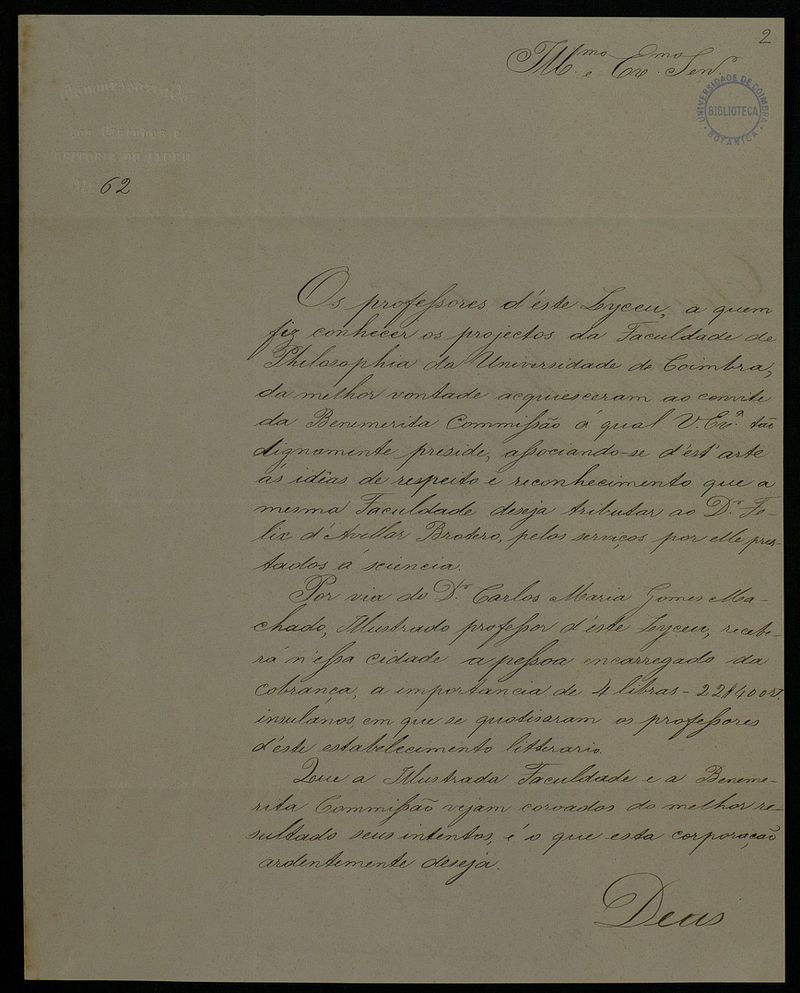 2
Ill.mo e Ex.mo Sen.r
UNIVERSIDADE DE COIMBRA
BIBLIOTECA
BOTANICA
62
Os professores d'éste Lyceu, a quem
fiz conhecer os projectos da Faculdade de
Philosophia da Universidade de Coimbra,
da melhor vontade acquiesceram ao convite
da Benemerita Commissão á qual V. Ex.a tão
dignamente preside, associando-se d'est'arte
ás idêas de respeito e reconhecimento que a
mesma Faculdade deseja tributar ao D.r Fe-
lix d'Avellar Brotero, pelos serviços por elle pres-
tados á sciencia.
Por via do D.r Carlos Maria Gomes Ma-
chado, Illustrado professor d'éste Lyceu, recebe-
rá n'essa cidade a pessoa encarregada da
cobrança, a importancia de 4 libras - 22$400 rs.
insulános em que se quotisaram os professores
d'éste estabelecimento litterario.
Que a Illustrada Faculdade e a Beneme-
rita Commissão vejam coroados do melhor re-
sultado seus intentos, é o que esta corporação
ardentemente deseja.
Deus